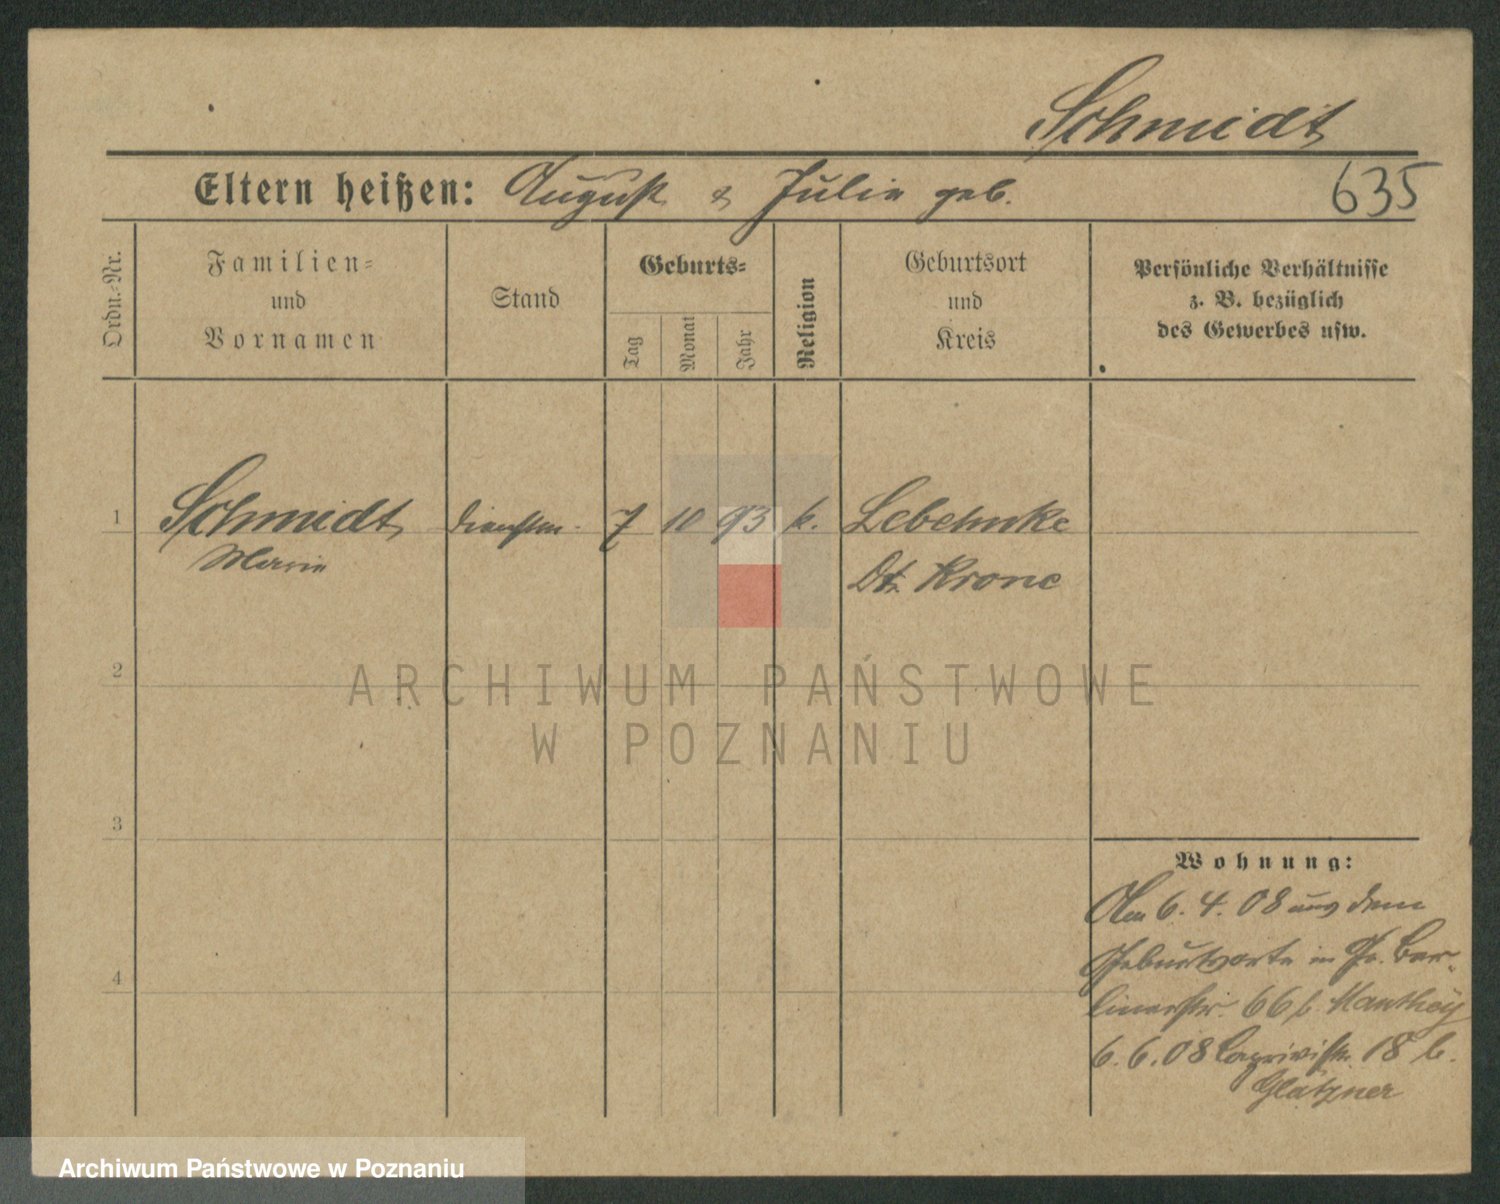 Schmidt
Eltern heißen: August & Julie geb.
635
Ordn.-Nr.
Familien-
und
Vornamen
Stand
Geburts-
Tag
Monat
Jahr
Religion
Geburtsort
und
Kreis
Persönliche Verhältnisse
z. B. bezüglich
des Gewerbes usw.
1 Schmidt 7 10 93 k. Lebehnke
Marie Dt. Krone
2
3
4
Wohnung:
Am 6. 4. 08 aus dem
Geburtsorte in Po. Ber-
linerstr. 66 b. Manthey
6. 6. 08 Caprivistr. 18 b.
Glätzner
ARCHIWUM PAŃSTWOWE
W POZNANIU
Archiwum Państwowe w Poznaniu